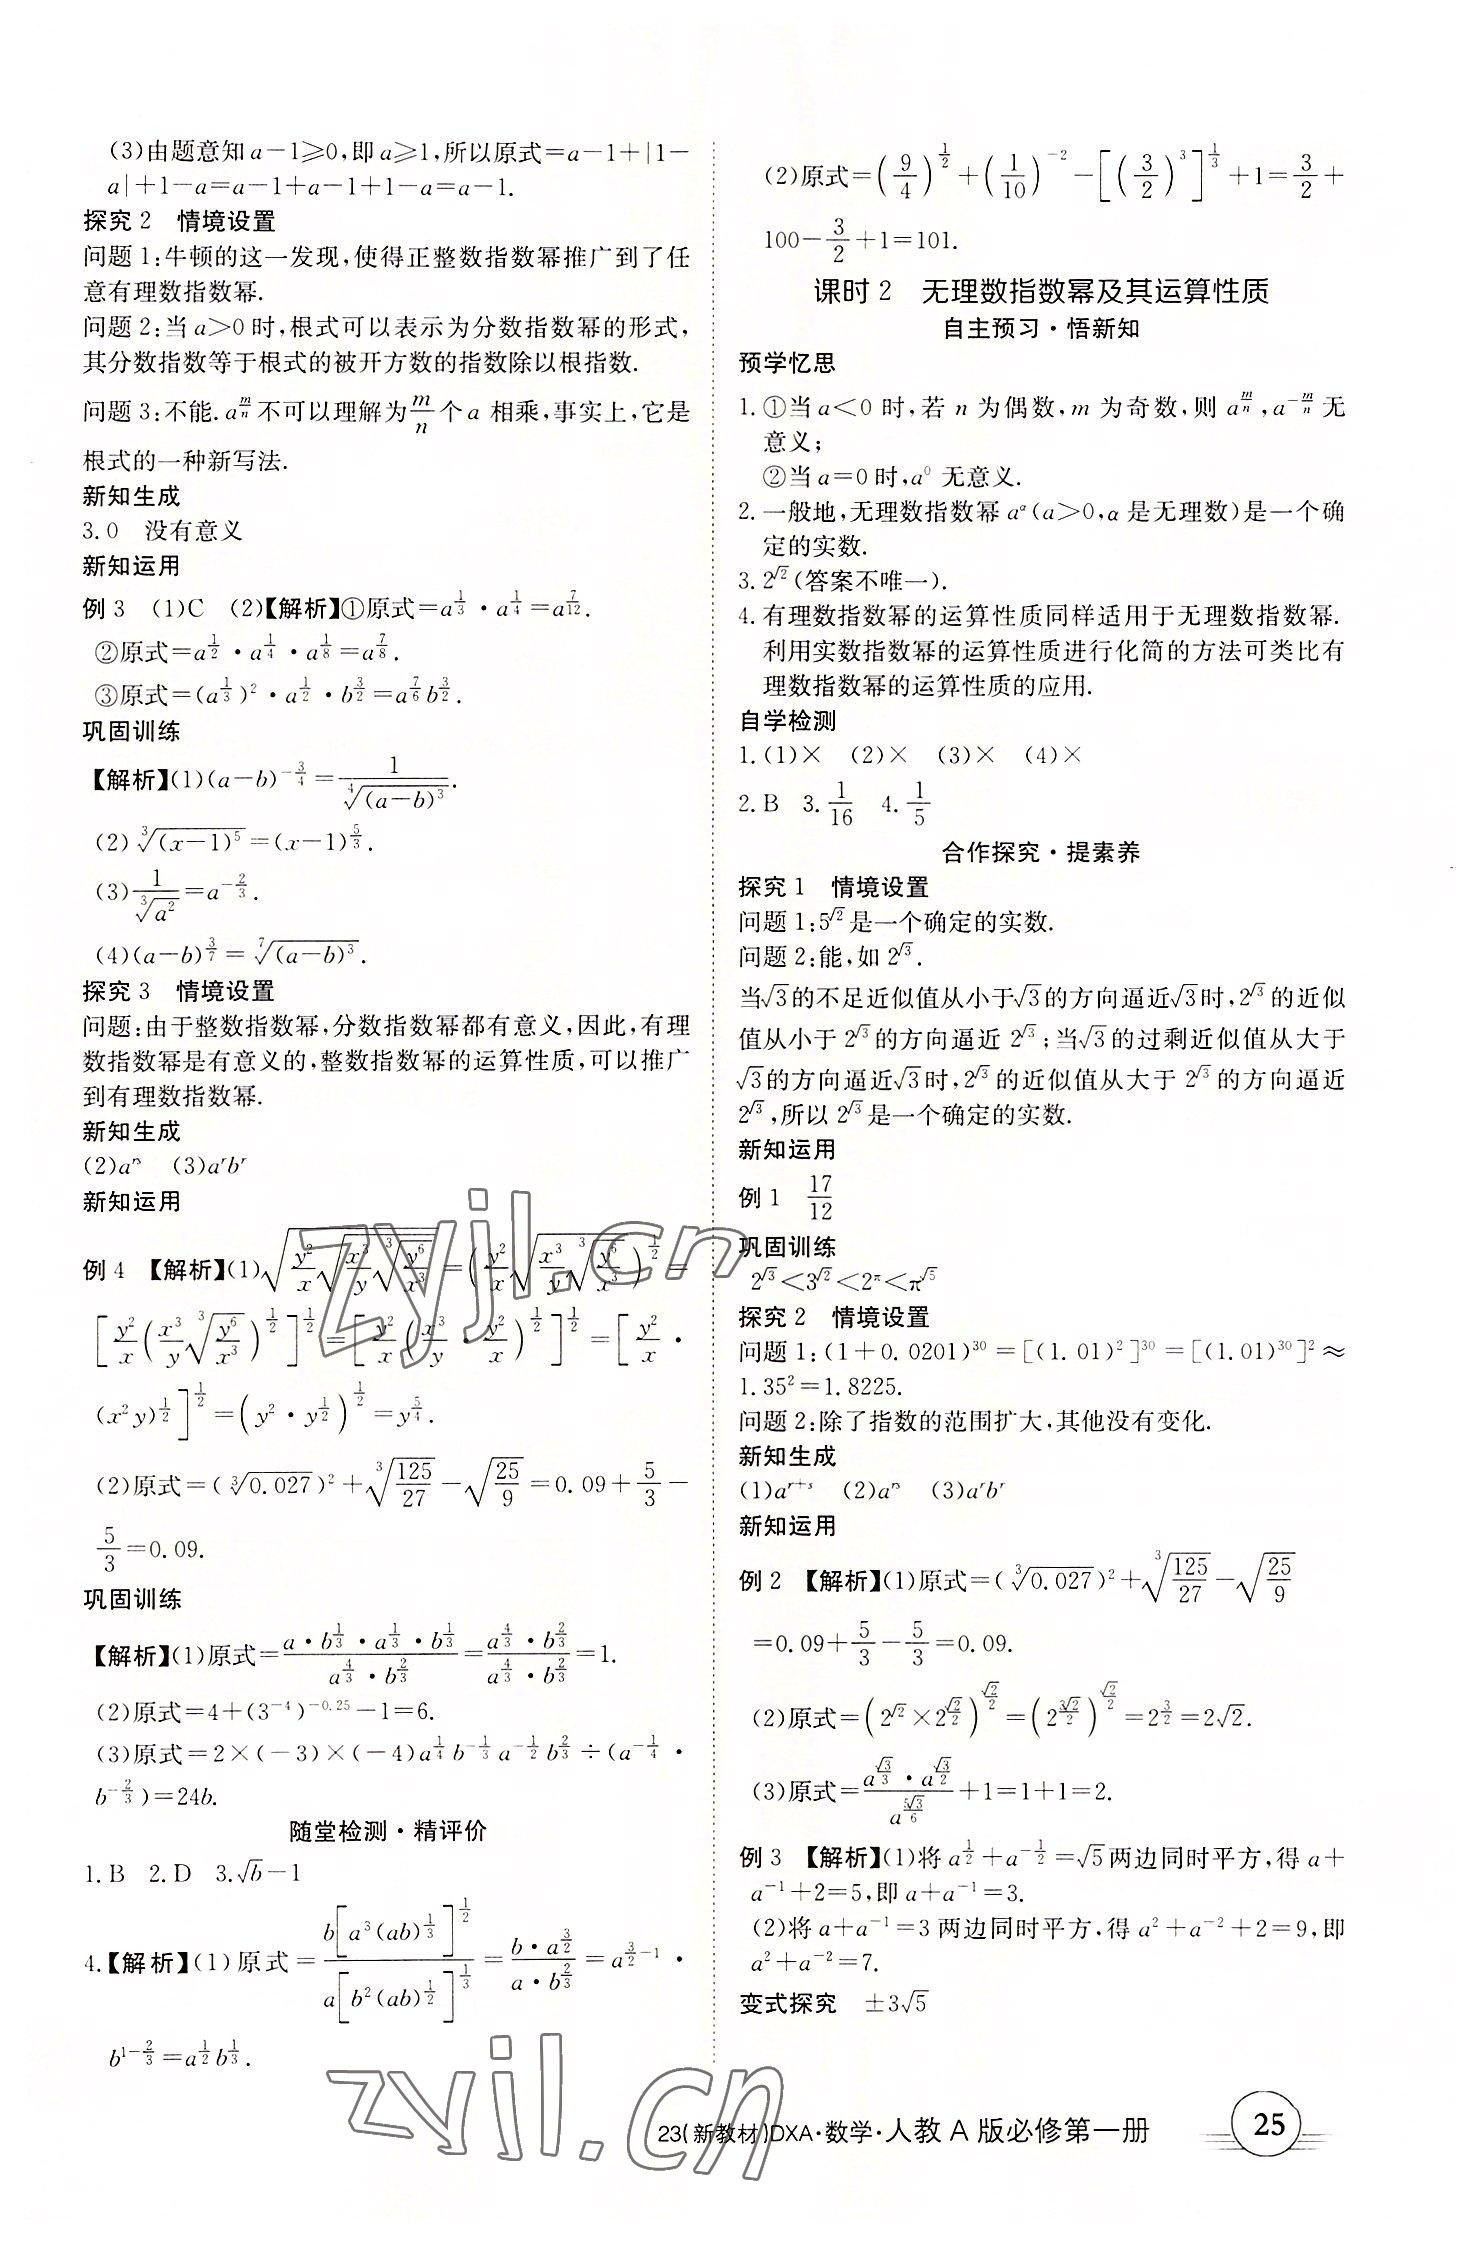 (3)由题意知 a－1≥0,即 a≥1,所以原式=a－1+|1－
a|+1－a=a－1+a－1+1－a=a－1.
探究 2 情境设置
问题 1:牛顿的这一发现,使得正整数指数幂推广到了任
意有理数指数幂.
问题 2:当 a>0 时,根式可以表示为分数指数幂的形式,
其分数指数等于根式的被开方数的指数除以根指数.
问题 3:不能. a^{m/n} 不可以理解为 m/n 个 a 相乘,事实上,它是
根式的一种新写法.
新知生成
3.0 没有意义
新知运用
例 3 (1)C (2)【解析】①原式=a^{1/3}·a^{1/4}=a^{7/12}.
②原式=a^{1/2}·a^{1/4}·a^{1/8}=a^{7/8}.
③原式=(a^{1/3})²·a^{1/2}·b^{3/2}=a^{7/6}b^{3/2}.
巩固训练
【解析】(1)(a－b)^{－3/4}=1/∜((a－b)³).
(2)∛((x－1)⁵)=(x－1)^{5/3}.
(3)1/∛(a²)=a^{－2/3}.
(4)(a－b)^{3/7}=⁷√((a－b)³).
探究 3 情境设置
问题:由于整数指数幂,分数指数幂都有意义,因此,有理
数指数幂是有意义的,整数指数幂的运算性质,可以推广
到有理数指数幂.
新知生成
(2)a^{rs} (3)a^r b^r
新知运用
例 4 【解析】(1)√(y²/x √(x³/y ∛(y⁶/x³)))=(y²/x √(x³/y ∛(y⁶/x³)))^{1/2}=
[y²/x(x³/y ∛(y⁶/x³))^{1/2}]^{1/2}=[y²/x(x³/y·y²/x)^{1/2}]^{1/2}=[y²/x·
(x²y)^{1/2}]^{1/2}=(y²·y^{1/2})^{1/2}=y^{5/4}.
(2)原式=(∛0.027)²+∛(125/27)－√(25/9)=0.09+5/3－
5/3=0.09.
巩固训练
【解析】(1)原式=(a·b^{1/3}·a^{1/3}·b^{1/3})/(a^{4/3}·b^{2/3})=(a^{4/3}·b^{2/3})/(a^{4/3}·b^{2/3})=1.
(2)原式=4+(3^{－4})^{－0.25}－1=6.
(3)原式=2×(－3)×(－4)a^{1/4}b^{－1/3}a^{－1/2}b^{2/3}÷(a^{－1/4}·
b^{－2/3})=24b.
随堂检测·精评价
1.B 2.D 3.√b－1
4.【解析】(1)原式=b[a³(ab)^{1/3}]^{1/2}/a[b²(ab)^{1/2}]^{1/3}=(b·a^{3/2})/(a·b^{2/3})=a^{3/2－1}·
b^{1－2/3}=a^{1/2}b^{1/3}.
(2)原式=(9/4)^{1/2}+(1/10)^{－2}－[(3/2)³]^{1/3}+1=3/2+
100－3/2+1=101.
课时 2 无理数指数幂及其运算性质
自主预习·悟新知
预学忆思
1.①当 a<0 时,若 n 为偶数,m 为奇数,则 a^{m/n},a^{－m/n} 无
意义;
②当 a=0 时,a⁰ 无意义.
2.一般地,无理数指数幂 a^α(a>0,α 是无理数)是一个确
定的实数.
3.2^{√2}(答案不唯一).
4.有理数指数幂的运算性质同样适用于无理数指数幂.
利用实数指数幂的运算性质进行化简的方法可类比有
理数指数幂的运算性质的应用.
自学检测
1.(1)× (2)× (3)× (4)×
2.B 3.1/16 4.1/5
合作探究·提素养
探究 1 情境设置
问题 1:5^{√2}是一个确定的实数.
问题 2:能,如 2^{√3}.
当√3的不足近似值从小于√3的方向逼近√3时,2^{√3}的近似
值从小于 2^{√3} 的方向逼近 2^{√3};当√3的过剩近似值从大于
√3的方向逼近√3时,2^{√3} 的近似值从大于 2^{√3} 的方向逼近
2^{√3},所以 2^{√3} 是一个确定的实数.
新知运用
例 1 17/12
巩固训练
2^{√3}<3^{√2}<2^π<π^{√5}
探究 2 情境设置
问题 1:(1+0.0201)³⁰=[(1.01)²]³⁰=[(1.01)³⁰]²≈
1.35²=1.8225.
问题 2:除了指数的范围扩大,其他没有变化.
新知生成
(1)a^{r+s} (2)a^{rs} (3)a^r b^r
新知运用
例 2 【解析】(1)原式=(∛0.027)²+∛(125/27)－√(25/9)
=0.09+5/3－5/3=0.09.
(2)原式=(2^{√2}×2^{√2/2})^{√2/2}=(2^{3√2/2})^{√2/2}=2^{3/2}=2√2.
(3)原式=(a^{√3/3}·a^{√3/2})/a^{5√3/6}+1=1+1=2.
例 3 【解析】(1)将 a^{1/2}+a^{－1/2}=√5两边同时平方,得 a+
a^{－1}+2=5,即 a+a^{－1}=3.
(2)将 a+a^{－1}=3 两边同时平方,得 a²+a^{－2}+2=9,即
a²+a^{－2}=7.
变式探究 ±3√5
23(新教材)DXA·数学·人教 A 版必修第一册 25
zyjl.cn
zyjl.cn